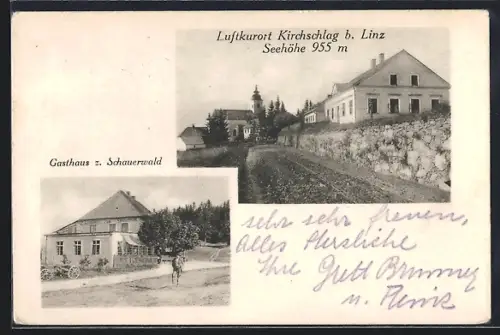 Luftkurort Kirchschlag b. Linz
Seehöhe 955 m
Gasthaus z. Schauerwald
sehr sehr freuen,
Alles Herzliche
Ihre Gretl
u.